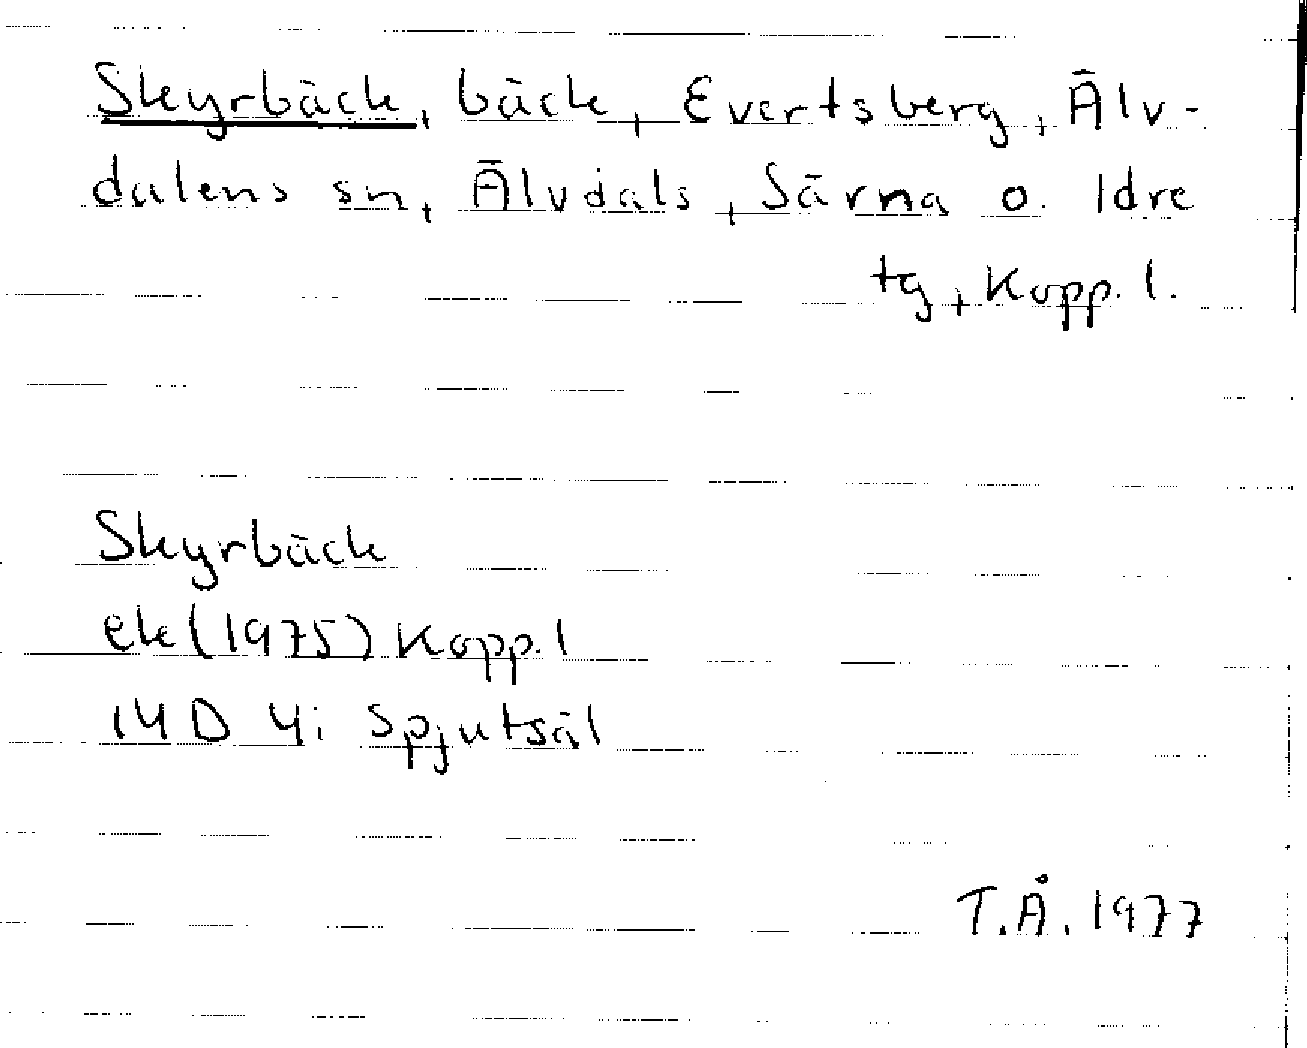 Skyrbäck, bäck, Evertsberg, Älv-
dalens sn, Älvdals, Särna o. Idre
tg, Kopp. l.
Skyrbäck
ek (1975) Kopp. l
14D 4i Spjutsäl
T.Å. 1977